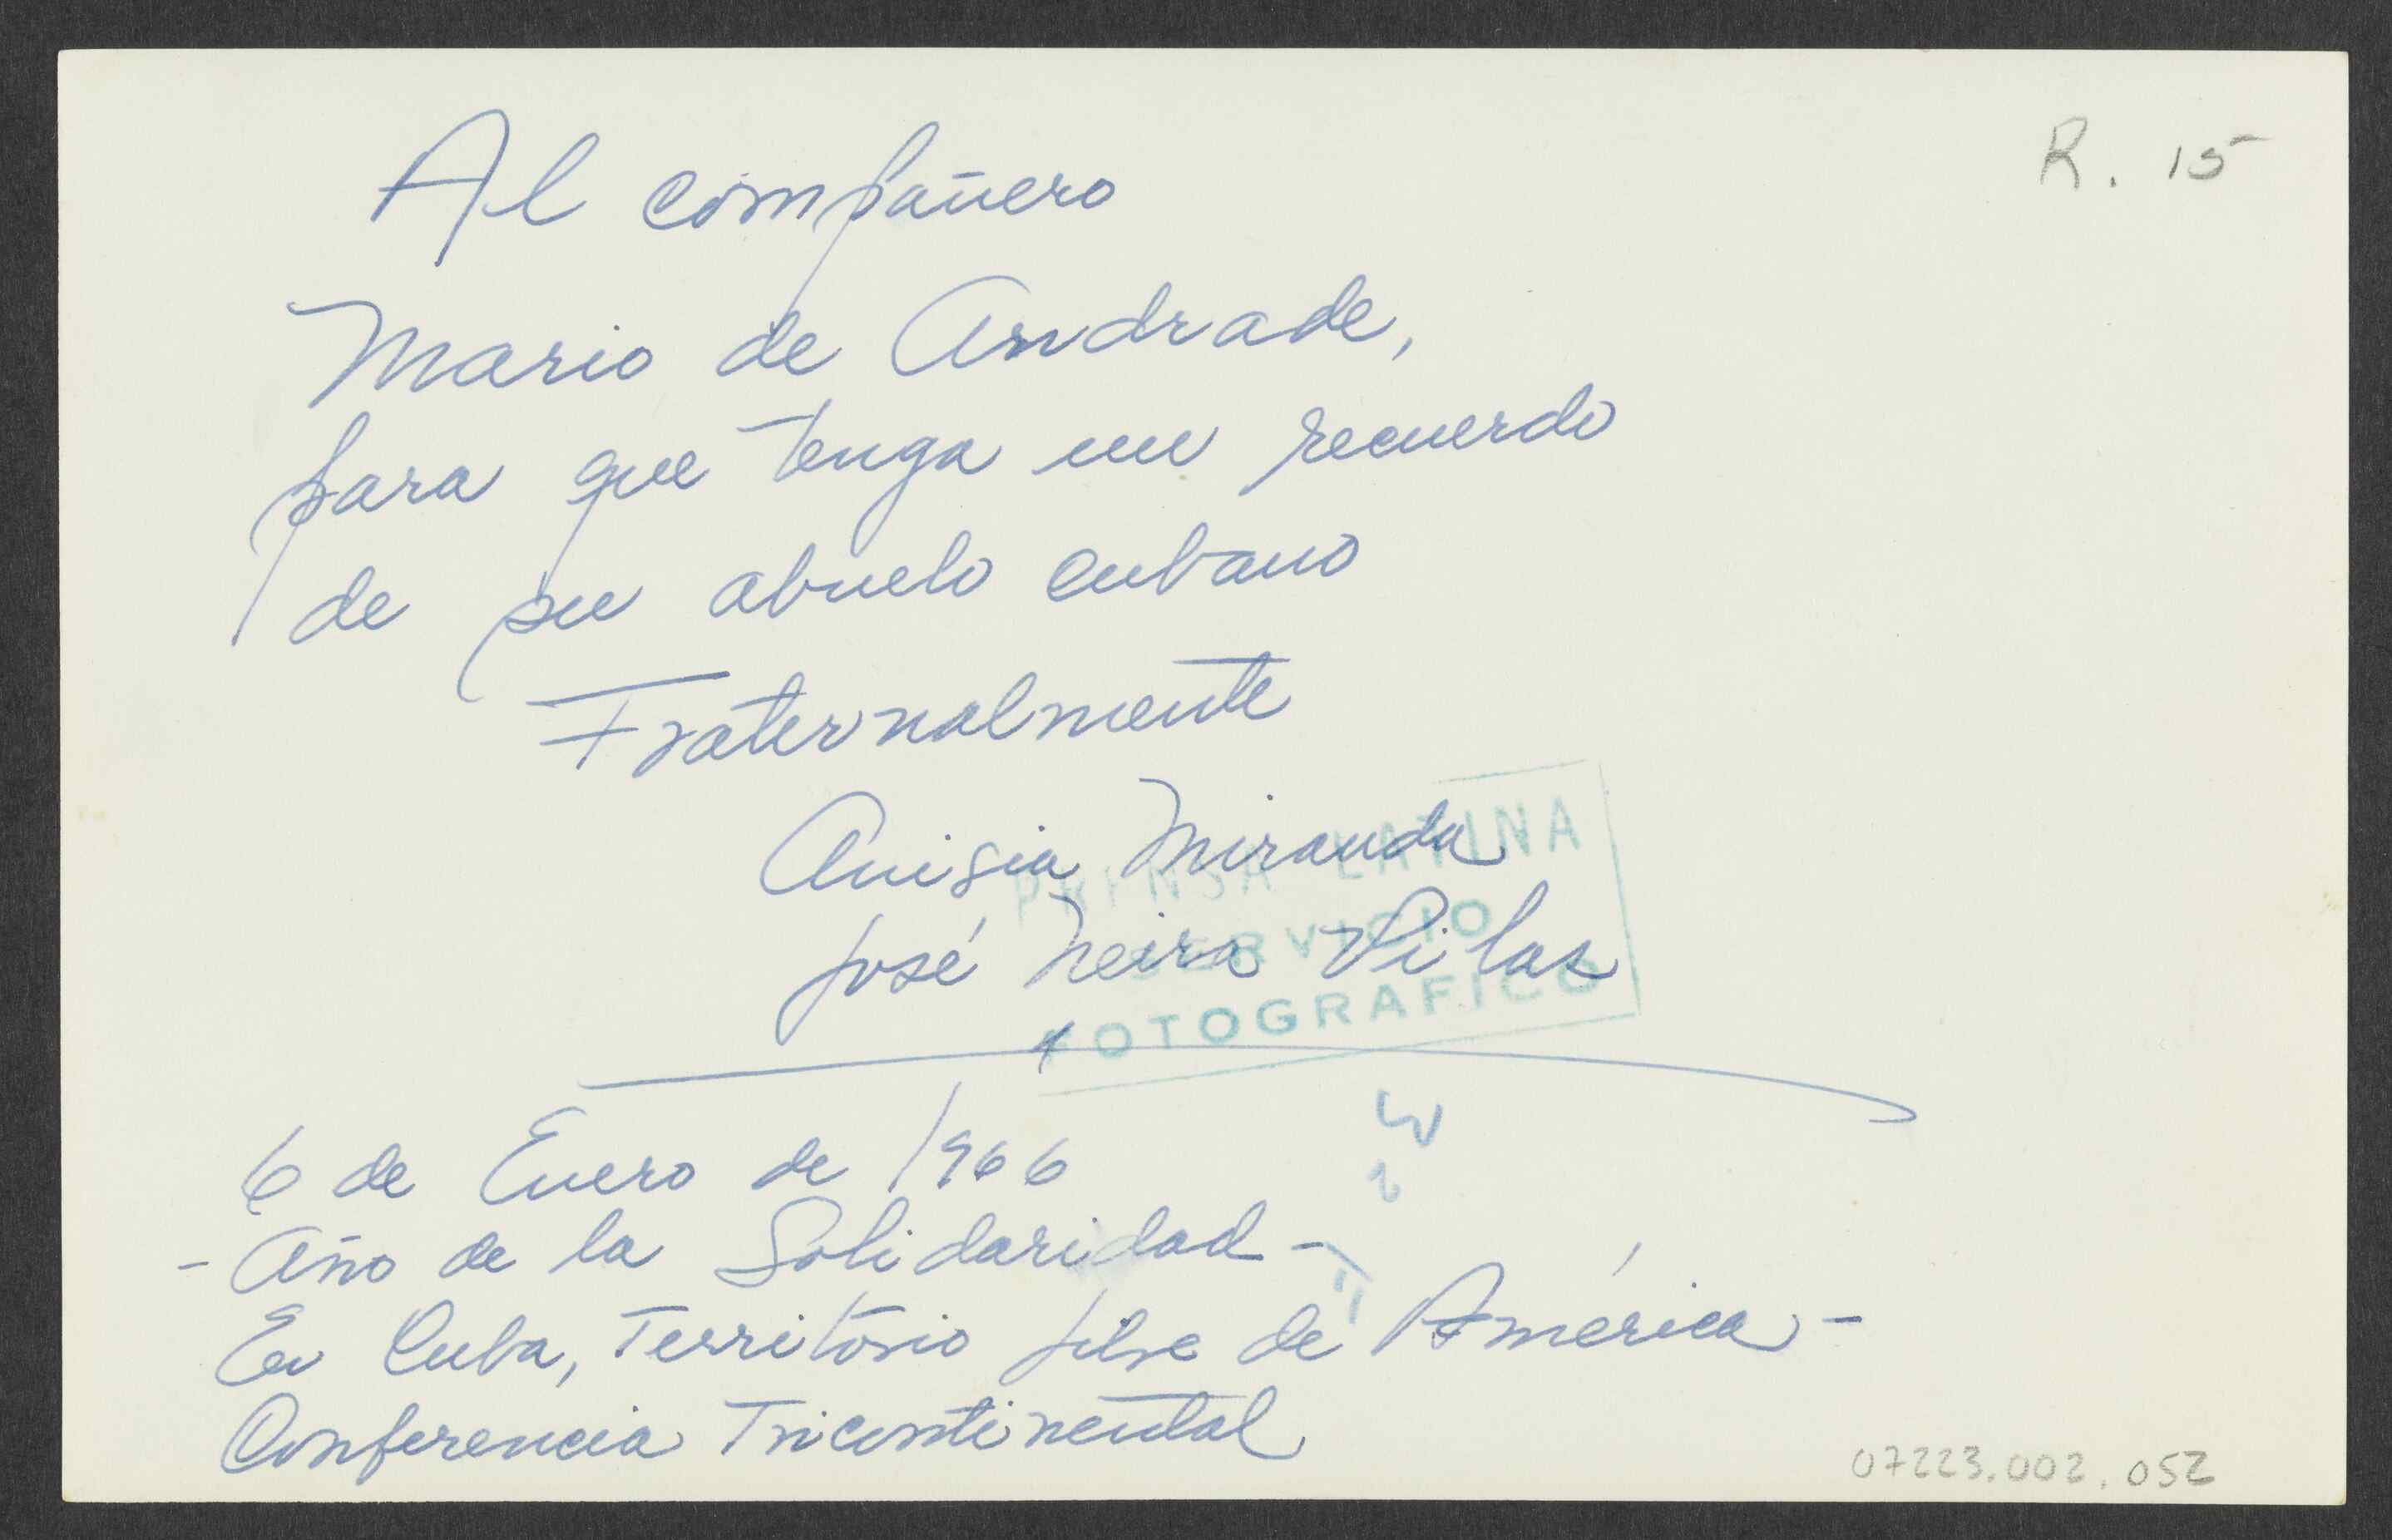 R. 15
Al compañero
Mario de Andrade,
para que tenga un recuerdo
de su abuelo cubano
Fraternalmente
Anisia Miranda
José Neira Vilas
PRENSA LATINA
SERVICIO
FOTOGRAFICO
6 de Enero de 1966
- Año de la Solidaridad -
En Cuba, Território libre de América -
Conferencia Tricontinental
07223.002.052